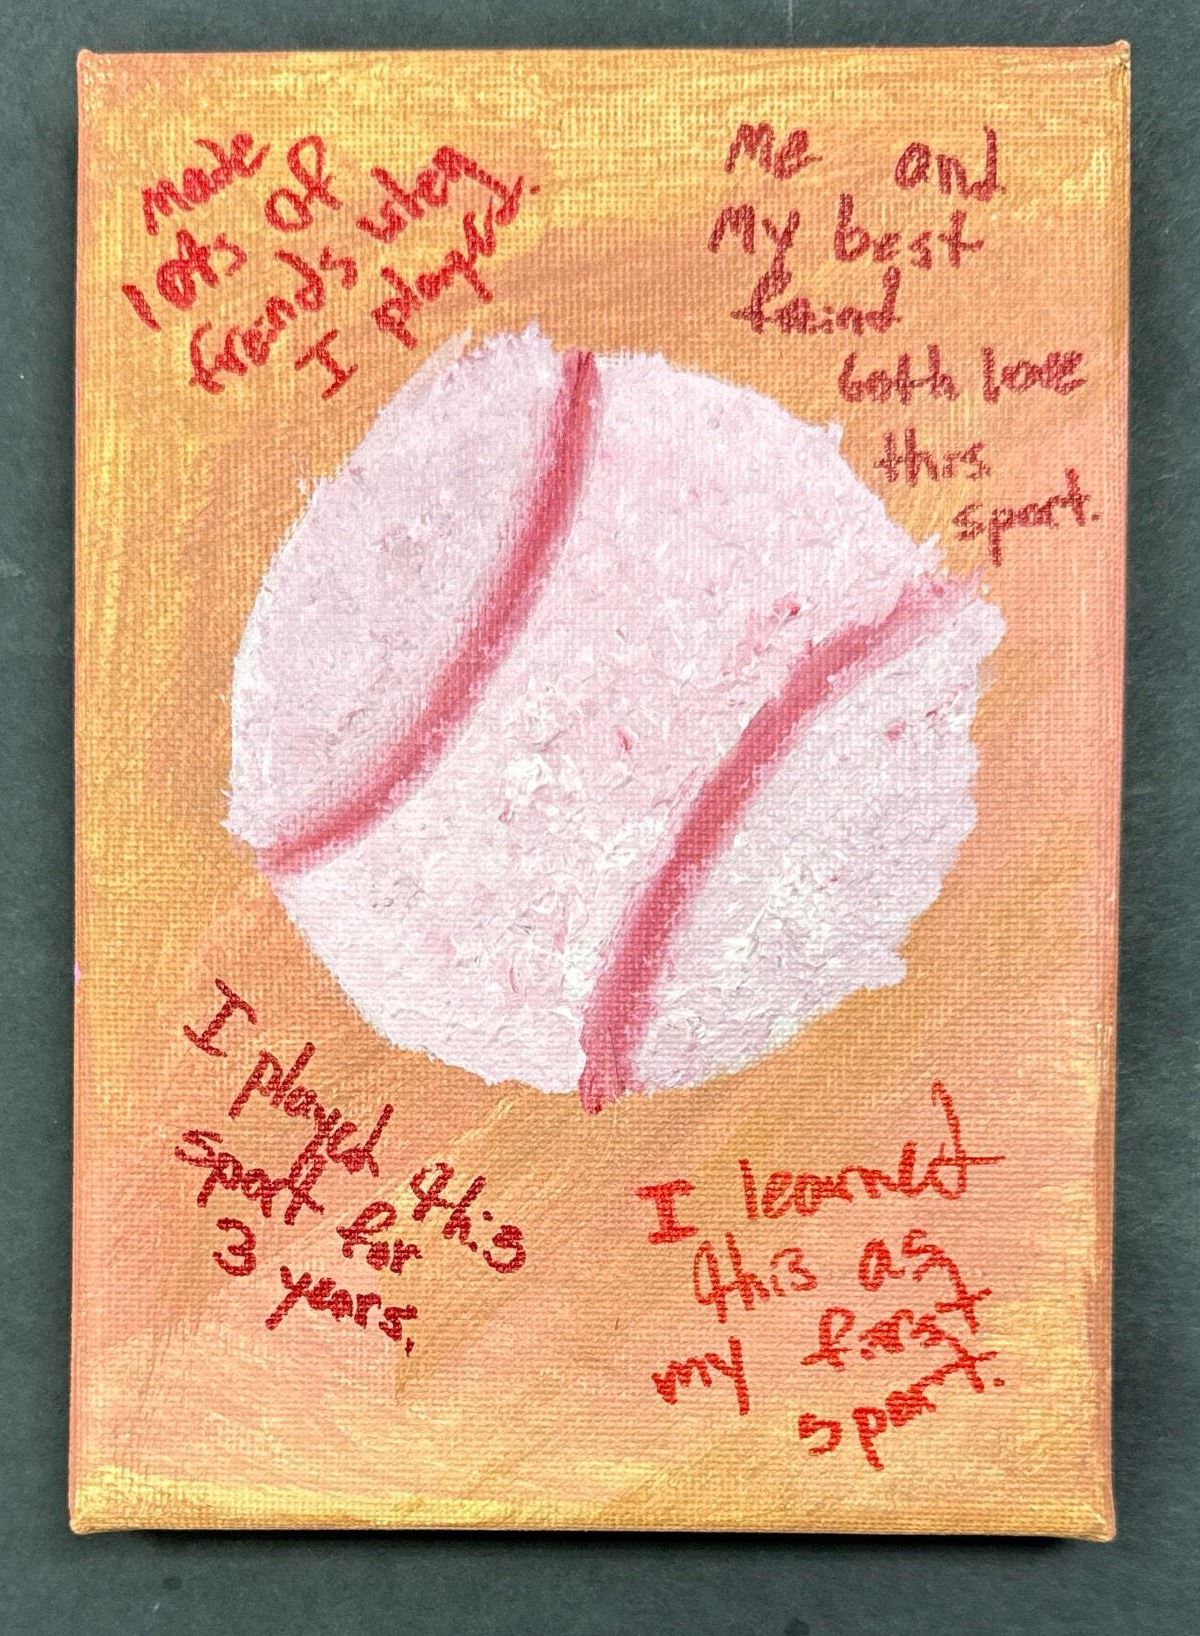 made
lots of
freinds when
I played.
Me and
My best
freind
both love
this
sport.
I played this
sport for
3 years.
I learned
this as
my first
sport.